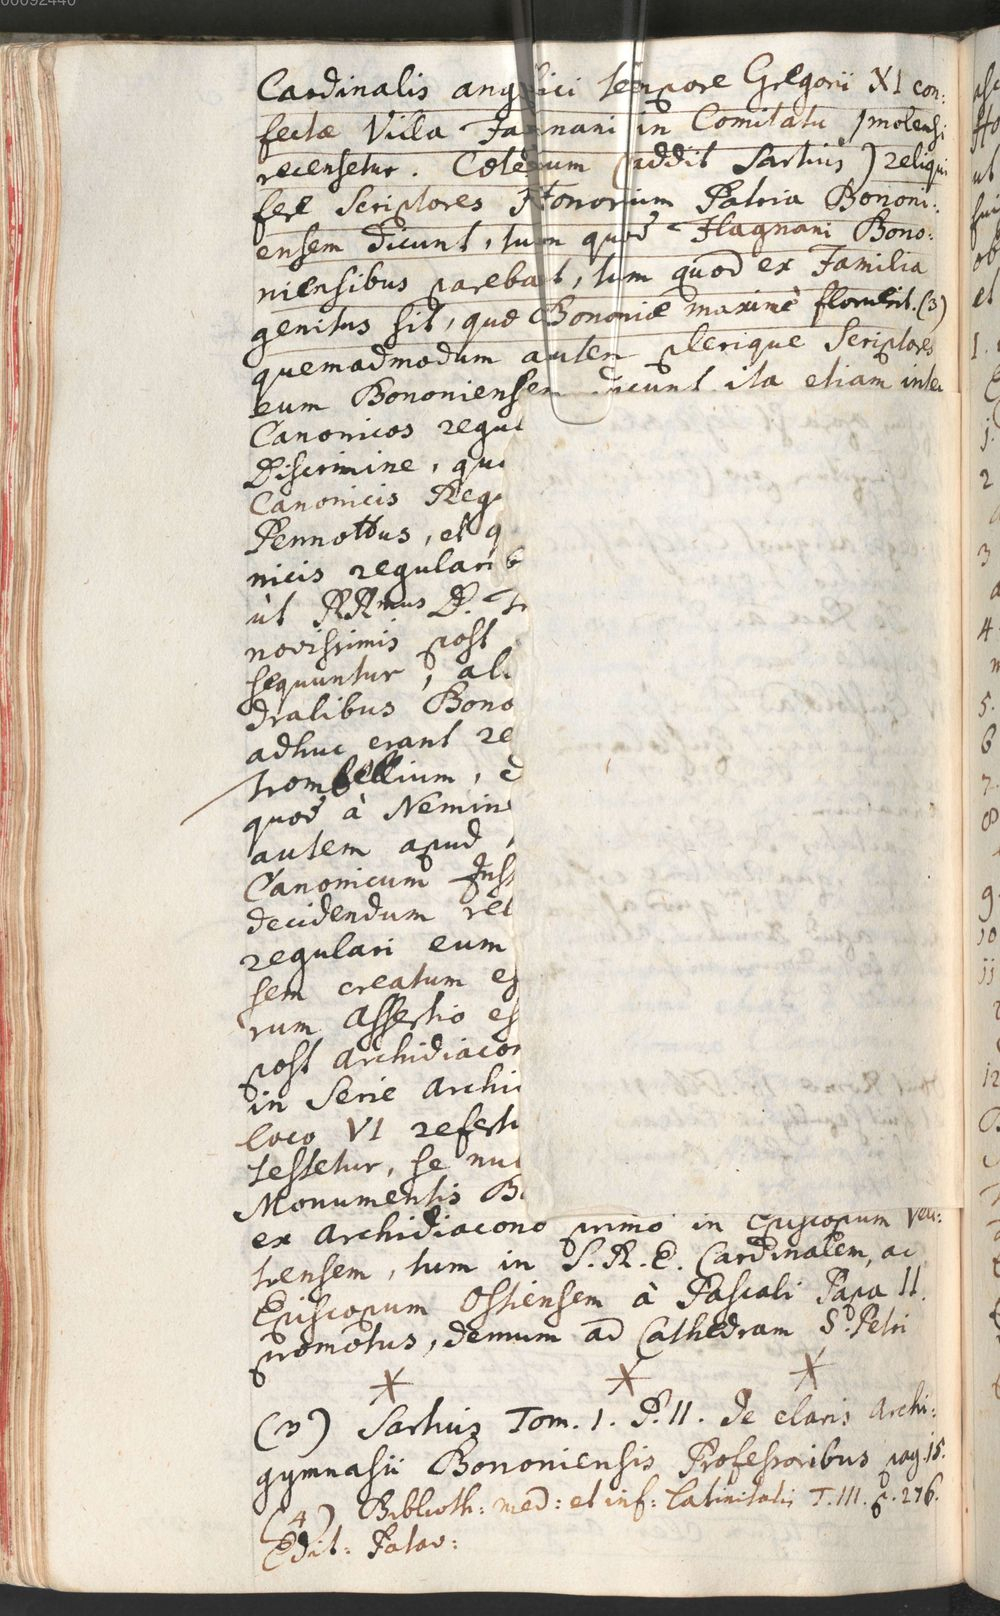 00092440
Cardinalis anglici tempore Gregorii XI con:
fectæ Villa Fagnani in Comitatu Jmolensi
recensetur. Cæterum (addit Sartius) reliqui
fere Scriptores Honorium Patria Bononi:
ensem dicunt, tum quod Flagnani Bono:
niensibus parebat, tum quod ex Familia
genitus sit, quæ Bononiæ maximè floruerit. (3)
quemadmodum autem plerique Scriptores
eum Bononiensem dicunt ita etiam inter
Canonicos regul
Discrimine, qu
Canonicis Reg
Pennottus, et q
nicis regularib
ùt RRmus D. Tr
novissimis post
sequuntur; al
dralibus Bono
adhuc erant re
trombellium,
quod à Nemin
autem apud
Canonicum Inst
decidendum rel
regulari eum
sem creatum es
rum Assertio es
post Archidiacon
in Serie Archi
loco VI referti
testetur, se nu
Monumentis B
ex Archidiacono primo in Episcopum Veli:
trensem, tum in S. R. E. Cardinalem, ac
Episcopum Ostiensem à Paschali Papa II.
promotus, demum ad Cathedram S. Petri
(3) Sartius Tom. 1. P. II. de claris Archi:
gymnasii Bononiensis Professoribus pag. 15.
(4) Biblioth: med: et inf: Latinitatis T. III. p. 276.
Edit: Patav: